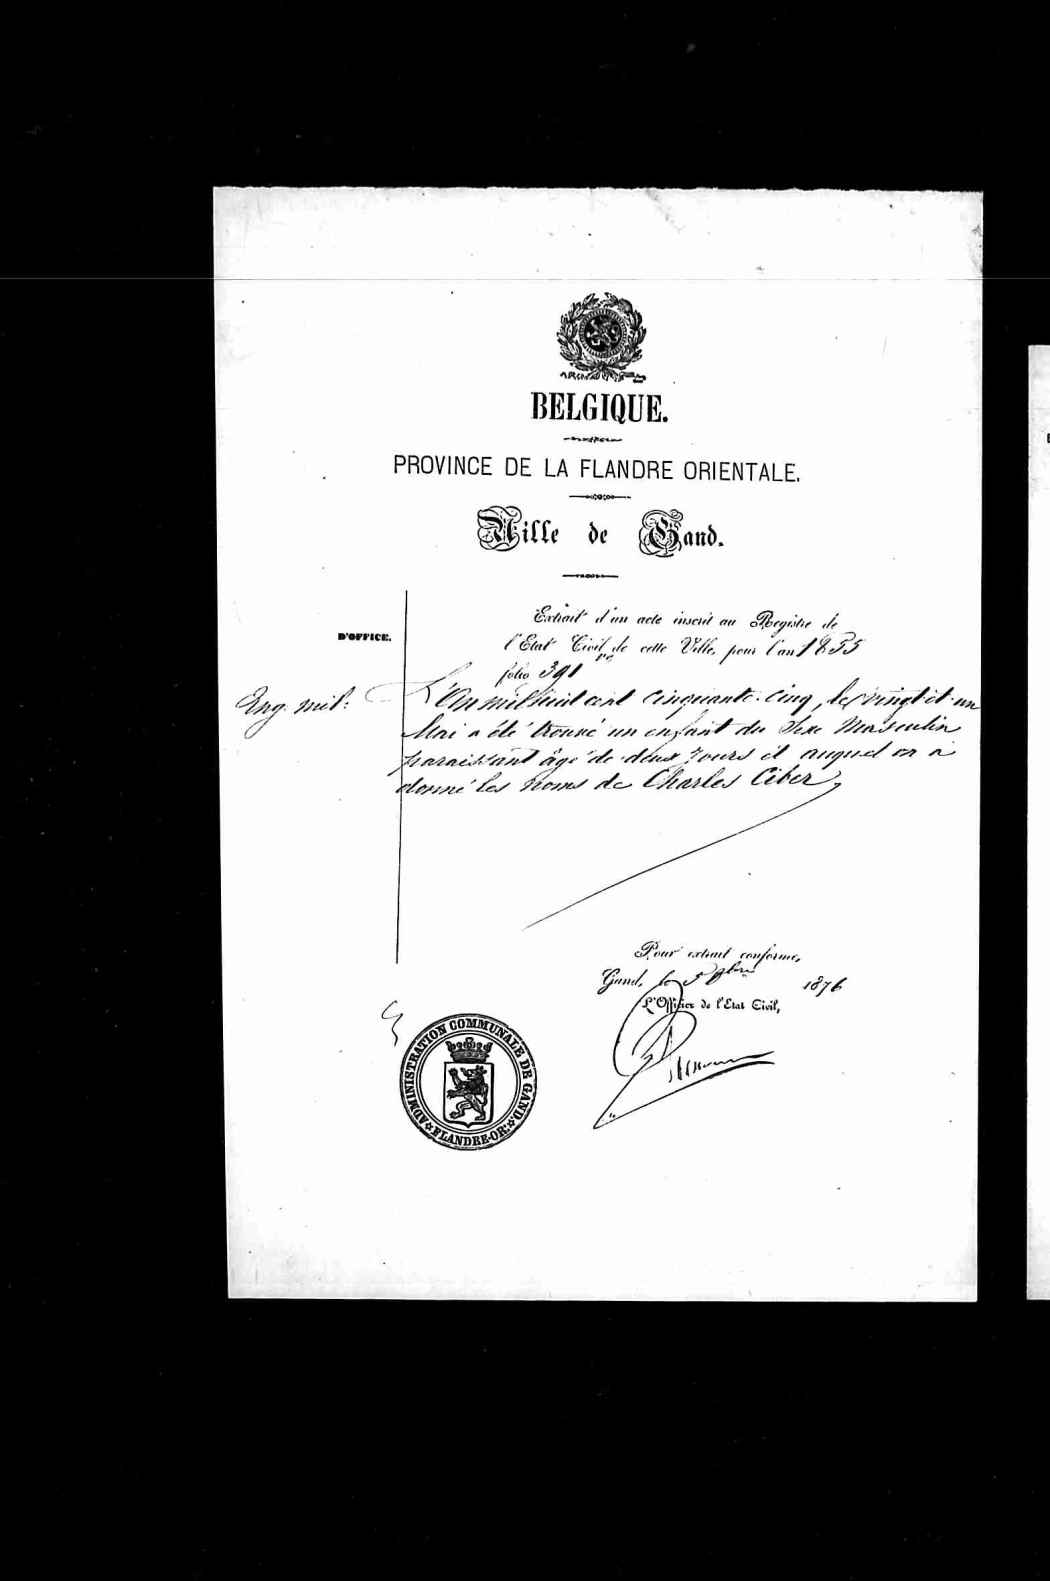 BELGIQUE.
PROVINCE DE LA FLANDRE ORIENTALE.
Ville de Gand.
D'OFFICE.
Extrait d'un acte inscrit au Registre de
l'Etat Civil de cette Ville, pour l'an 1855
folio 391
Eng. mil:
L'An mil huit cent cinquante-cinq, le vingt et un
Mai a été trouvé un enfant du Sexe Masculin
paraissant âgé de deux jours et auquel on a
donné les noms de Charles Ciber
Pour extrait conforme,
Gand, le 5 1876
L'Officier de l'Etat Civil,
ADMINISTRATION COMMUNALE DE GAND
FLANDRE-OR: